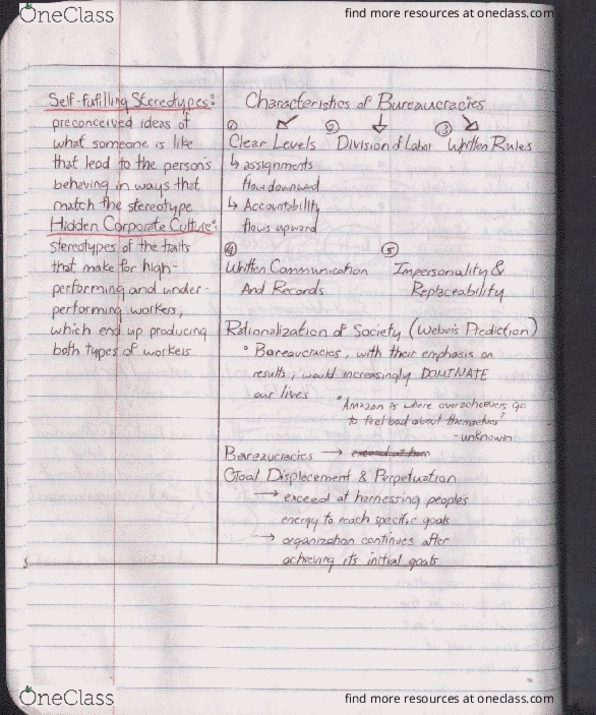 OneClass
find more resources at oneclass.com
Self-fulfilling Stereotypes:
preconceived ideas of
what someone is like
that lead to the person's
behaving in ways that
match the stereotype
Hidden Corporate Culture:
stereotypes of the traits
that make for high-
performing and under-
performing workers,
which end up producing
both types of workers
Characteristics of Bureaucracies
① ② ③
Clear Levels Division of Labor Written Rules
↳ assignments
flow downward
↳ Accountability
flows upward
④ ⑤
Written Communication Impersonality &
And Records Replaceability
Rationalization of Society (Weber's Prediction)
• Bureaucracies, with their emphasis on
results, would increasingly DOMINATE
our lives
"Amazon is where overachievers go
to feel bad about themselves"
- unknown
Bureaucracies →
Goal Displacement & Perpetuation
→ exceed at harnessing people's
energy to reach specific goals
→ organization continues after
achieving its initial goals
OneClass
find more resources at oneclass.com